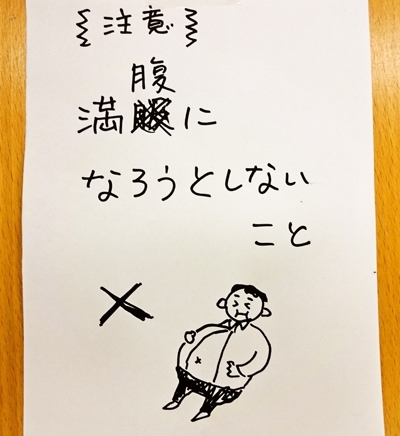 注意
満腹に
なろうとしない
こと